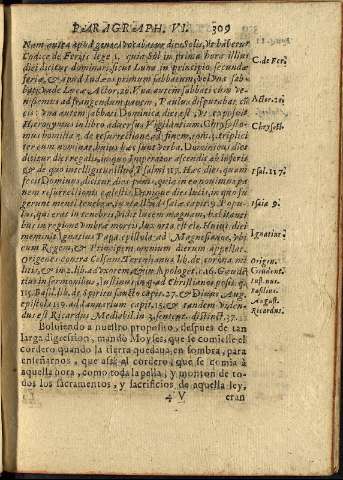 PARAGRAPH. VI. 309
Nam autea apud gentes vocabatur dies Solis, vt habetur
Codice de Ferijs lege 3. quia Sol in prima hora illius
diei dicitur dominari, sicut Luna in principio secundæ
feriæ, & apud Iudæos primum sabbatum, vel vna sab-
bati, vnde Lucæ, Actor. 20. Vna autem sabbati cum ve-
nissemus ad frangendum panem, Paulus disputabat cũ
eis: Vna autem sabbati Dominica dies est, vt exposuit
Hieronymus in libro aduersus Vigilantium. Chrysosto-
mus homilia de resurrectione ad finem, tripliciter
eum nominat, huius hæc sunt verba. Dominicus dies
dicitur dies regalis, in quo Imperator ascendit ab inferis
& de quo intelligitur illud Psalmi 117. Hæc dies, quam
fecit Dominus, dicitur dies
resurrectionis cælestis, Denique dies lucis, in quo
Isaiæ cap. 9. Popu-
lus, qui erat in tenebris, vidit lucem magnam, habitanti-
bus in regione vmbræ mortis, lux orta est eis. Huius diei
meminit Ignatius Papa epistola ad Magnesianos, vbi
eum Regem, & Principem omnium dierum appellat.
Origenes contra Celsum, Tertulianus lib. de corona mi-
litis, & in 2. lib. ad vxorem, & in Apologet. c. 16. Gauden-
tius in sermonibus, Iustinus, in q. ad Christianos posit. q.
115. Basil. lib. de Spiritu sancto capit. 27. & Diuus Aug.
epistola 119. ad Ianuarium capit. 15. & tandem viden-
dus est Ricardus Mediobil. in 3. sentent. distinct. 37.
Boluiendo a nuestro proposito, despues de tan
larga digression, mandò Moyses, que se comiesse el
cordero quando la tierra quedaua en sombra, para
enseñarnos, que assi al cordero, que se comia à
aquella hora, como toda la pella, y monton de to-
dos los sacramentos, y sacrificios de aquella ley,
4 V eran
C. de Fer.
Actor. 20.
Chrysost.
Psal. 117.
Isaiæ 9.
Ignatius.
Origen.
Gaudent.
Iust. mar.
Basilius.
August.
Ricardus.